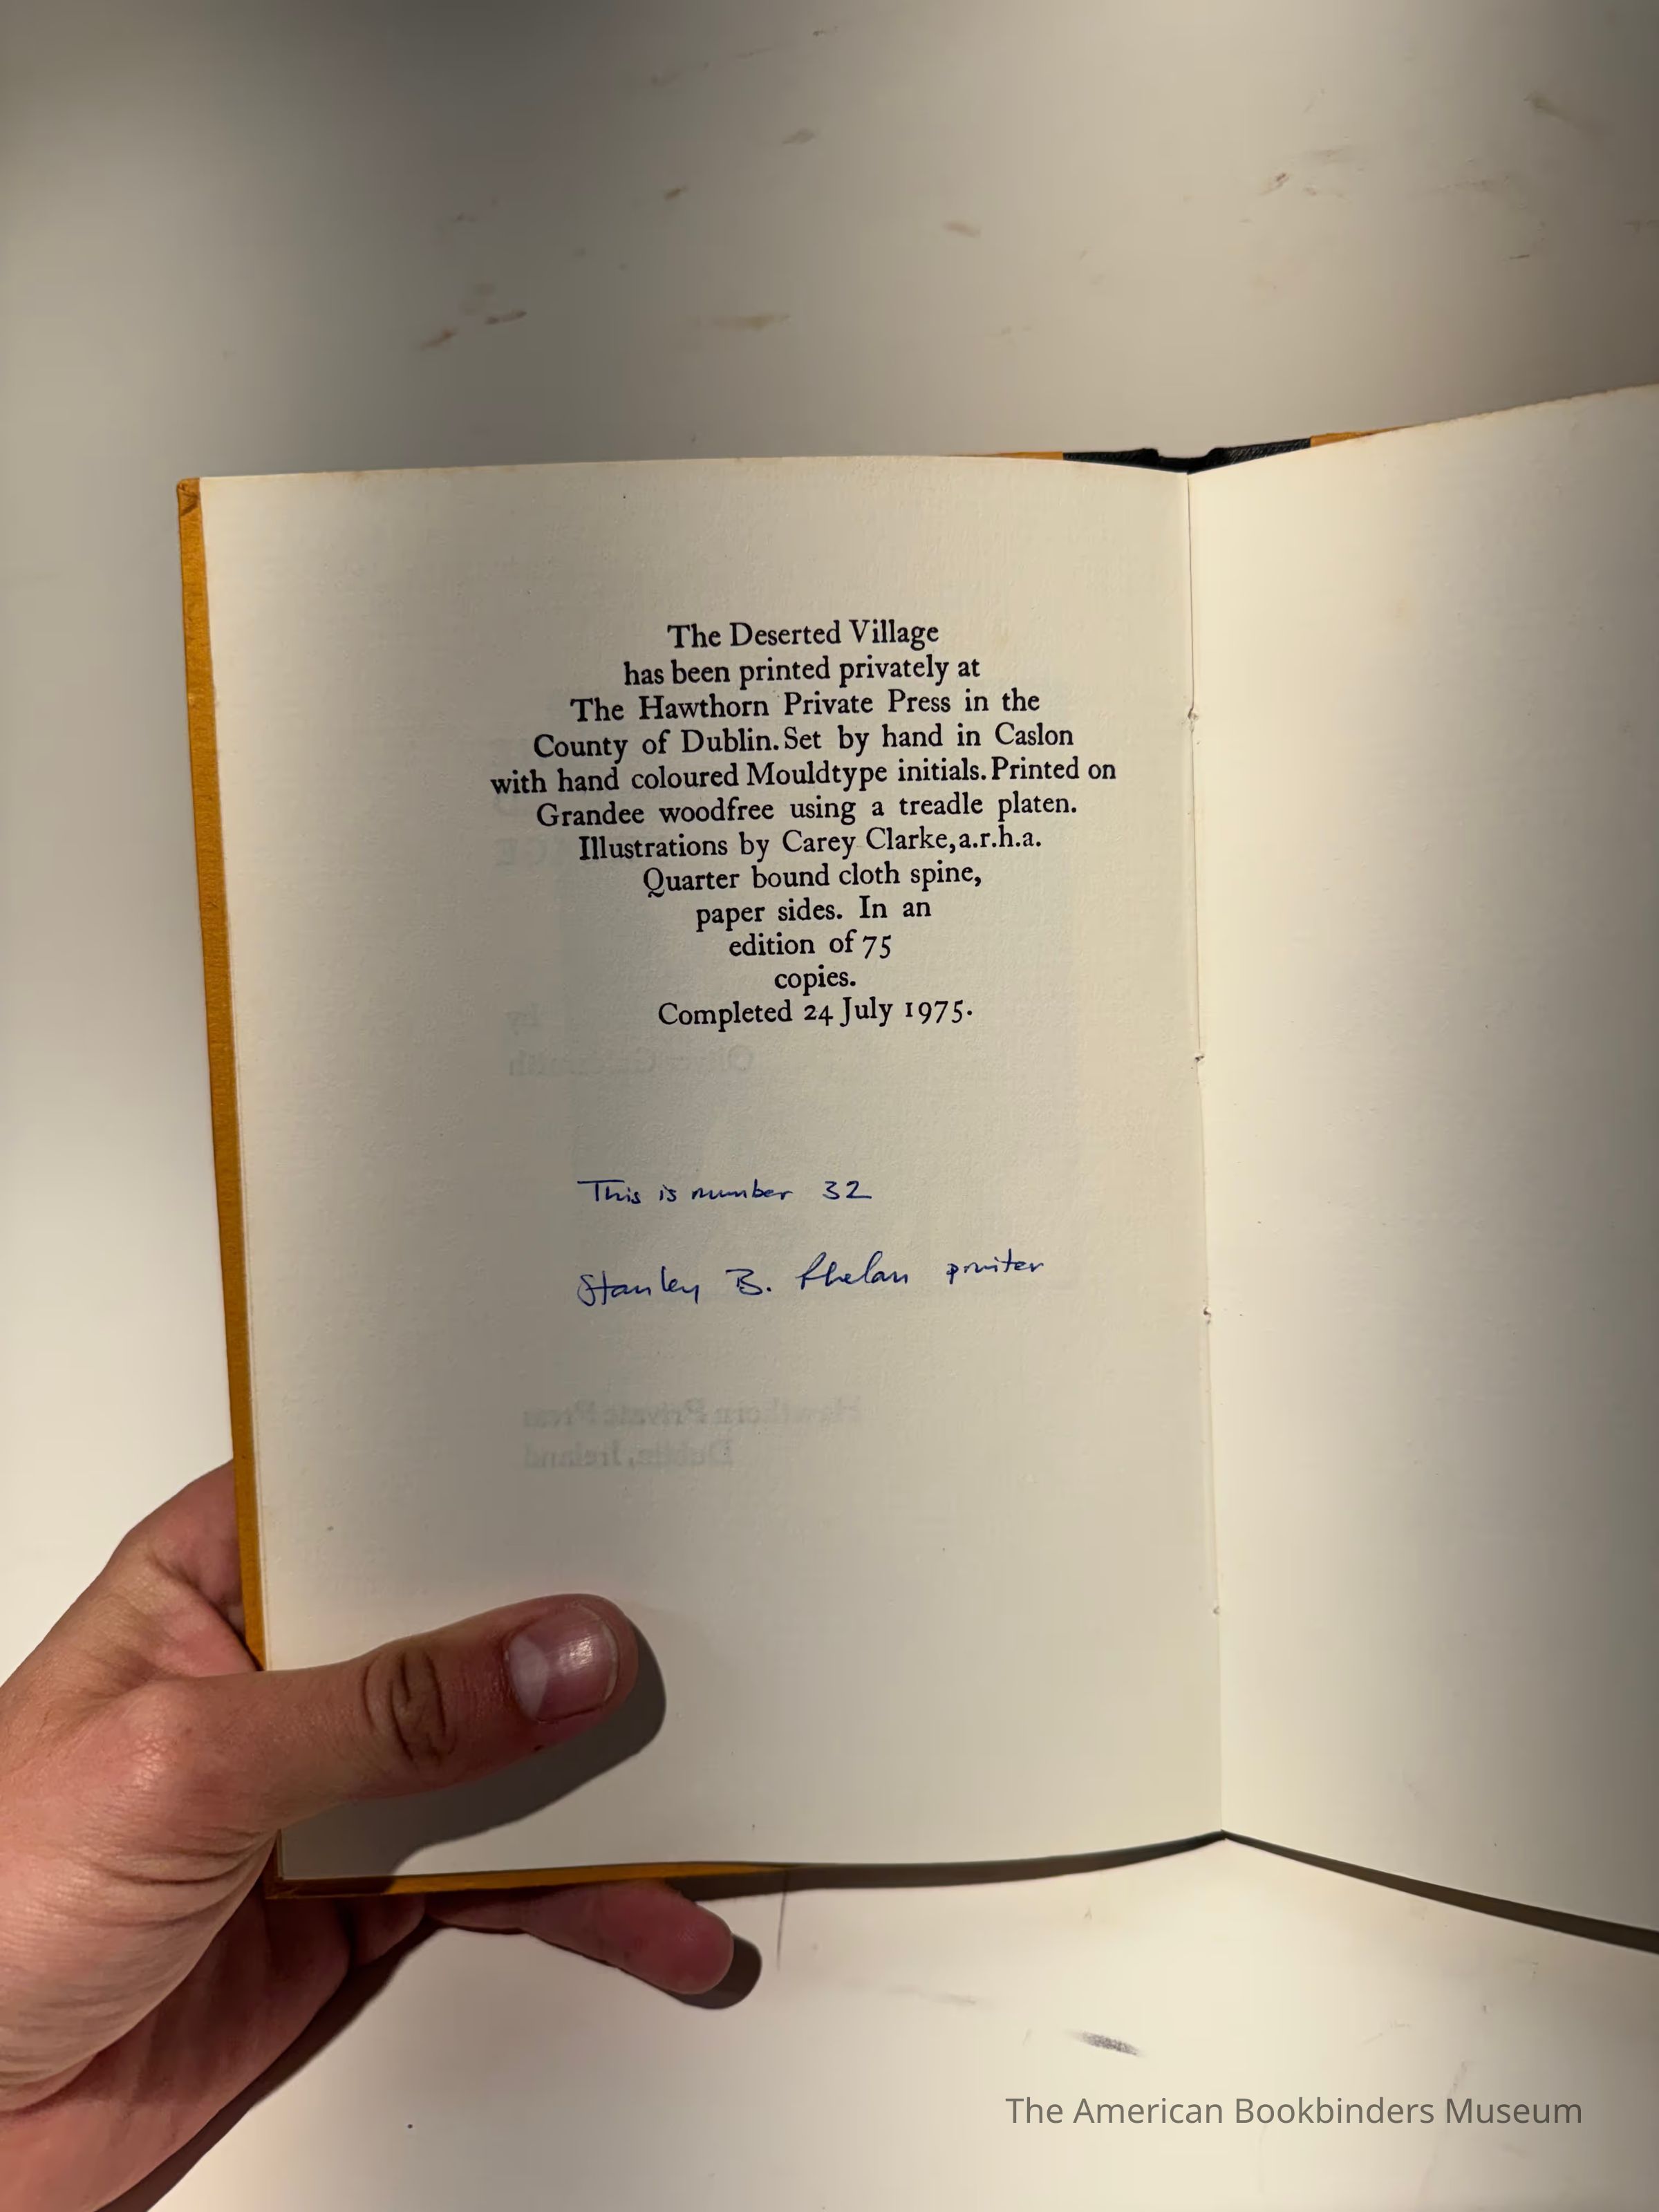 The Deserted Village
has been printed privately at
The Hawthorn Private Press in the
County of Dublin. Set by hand in Caslon
with hand coloured Mouldtype initials. Printed on
Grandee woodfree using a treadle platen.
Illustrations by Carey Clarke, a.r.h.a.
Quarter bound cloth spine,
paper sides. In an
edition of 75
copies.
Completed 24 July 1975.
This is number 32
Stanley B. Phelan printer
by
Oliver Goldsmith
Hawthorn Private Press
Dublin, Ireland
The American Bookbinders Museum